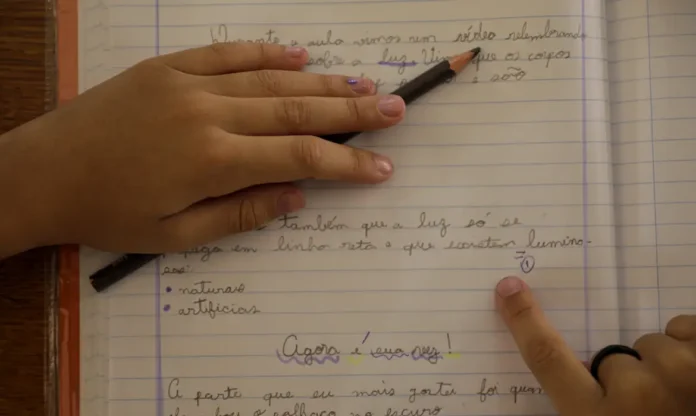 Durante a aula vimos um vídeo relembrando
sobre a luz. Vimos que os corpos
e são
também que a luz só se
propaga em linha reta e que existem lumino-
sos:
• naturais
• artificias
①
Agora é sua vez!
A parte que eu mais gostei foi quan
o palhaço no escuro